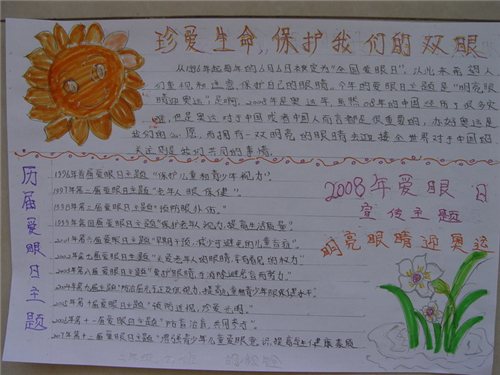 珍爱生命,保护我们的双眼
从1996年起每年的6月6日被定为"全国爱眼日",从此来希望人
们重视和注意,保护自己的眼睛。今年的爱眼日主题是"明亮眼
睛迎奥运",是啊,2008年是奥运年,虽然08年的中国经历了很多灾
难,但是奥运对于中国或者中国人而言都是很重要的,办好奥运是
我们的心愿,而拥有一双明亮的眼睛去迎接全世界对于中国的
关注则是我们共同的事情.
历届爱眼日主题
1996年首届爱眼日主题"保护儿童和青少年视力".
1997年第二届爱眼日主题"老年人眼保健".
1998年第三届爱眼日主题"预防眼外伤".
1999年第四届爱眼日主题"保护老年人视力,提高生活质量"
2001年第六届爱眼日主题"早期干预,减少可避免的儿童盲症".
2002年第七届爱眼日主题"关爱老年人的眼睛,享有看见的权力"
2003年第八届爱眼日主题"爱护眼睛,为消除避免盲而努力".
2004年第九届爱眼日主题"防治屈光不正及低视力,提高儿童和青少年眼保健水平"
2005年第十届爱眼日主题"预防近视,珍爱光明".
2006年第十一届爱眼日主题"防盲治盲,共同参与".
2007年第十二届爱眼日主题"增强青少年儿童爱眼意识,提高
2008年爱眼日
宣传主题
明亮眼睛迎奥运